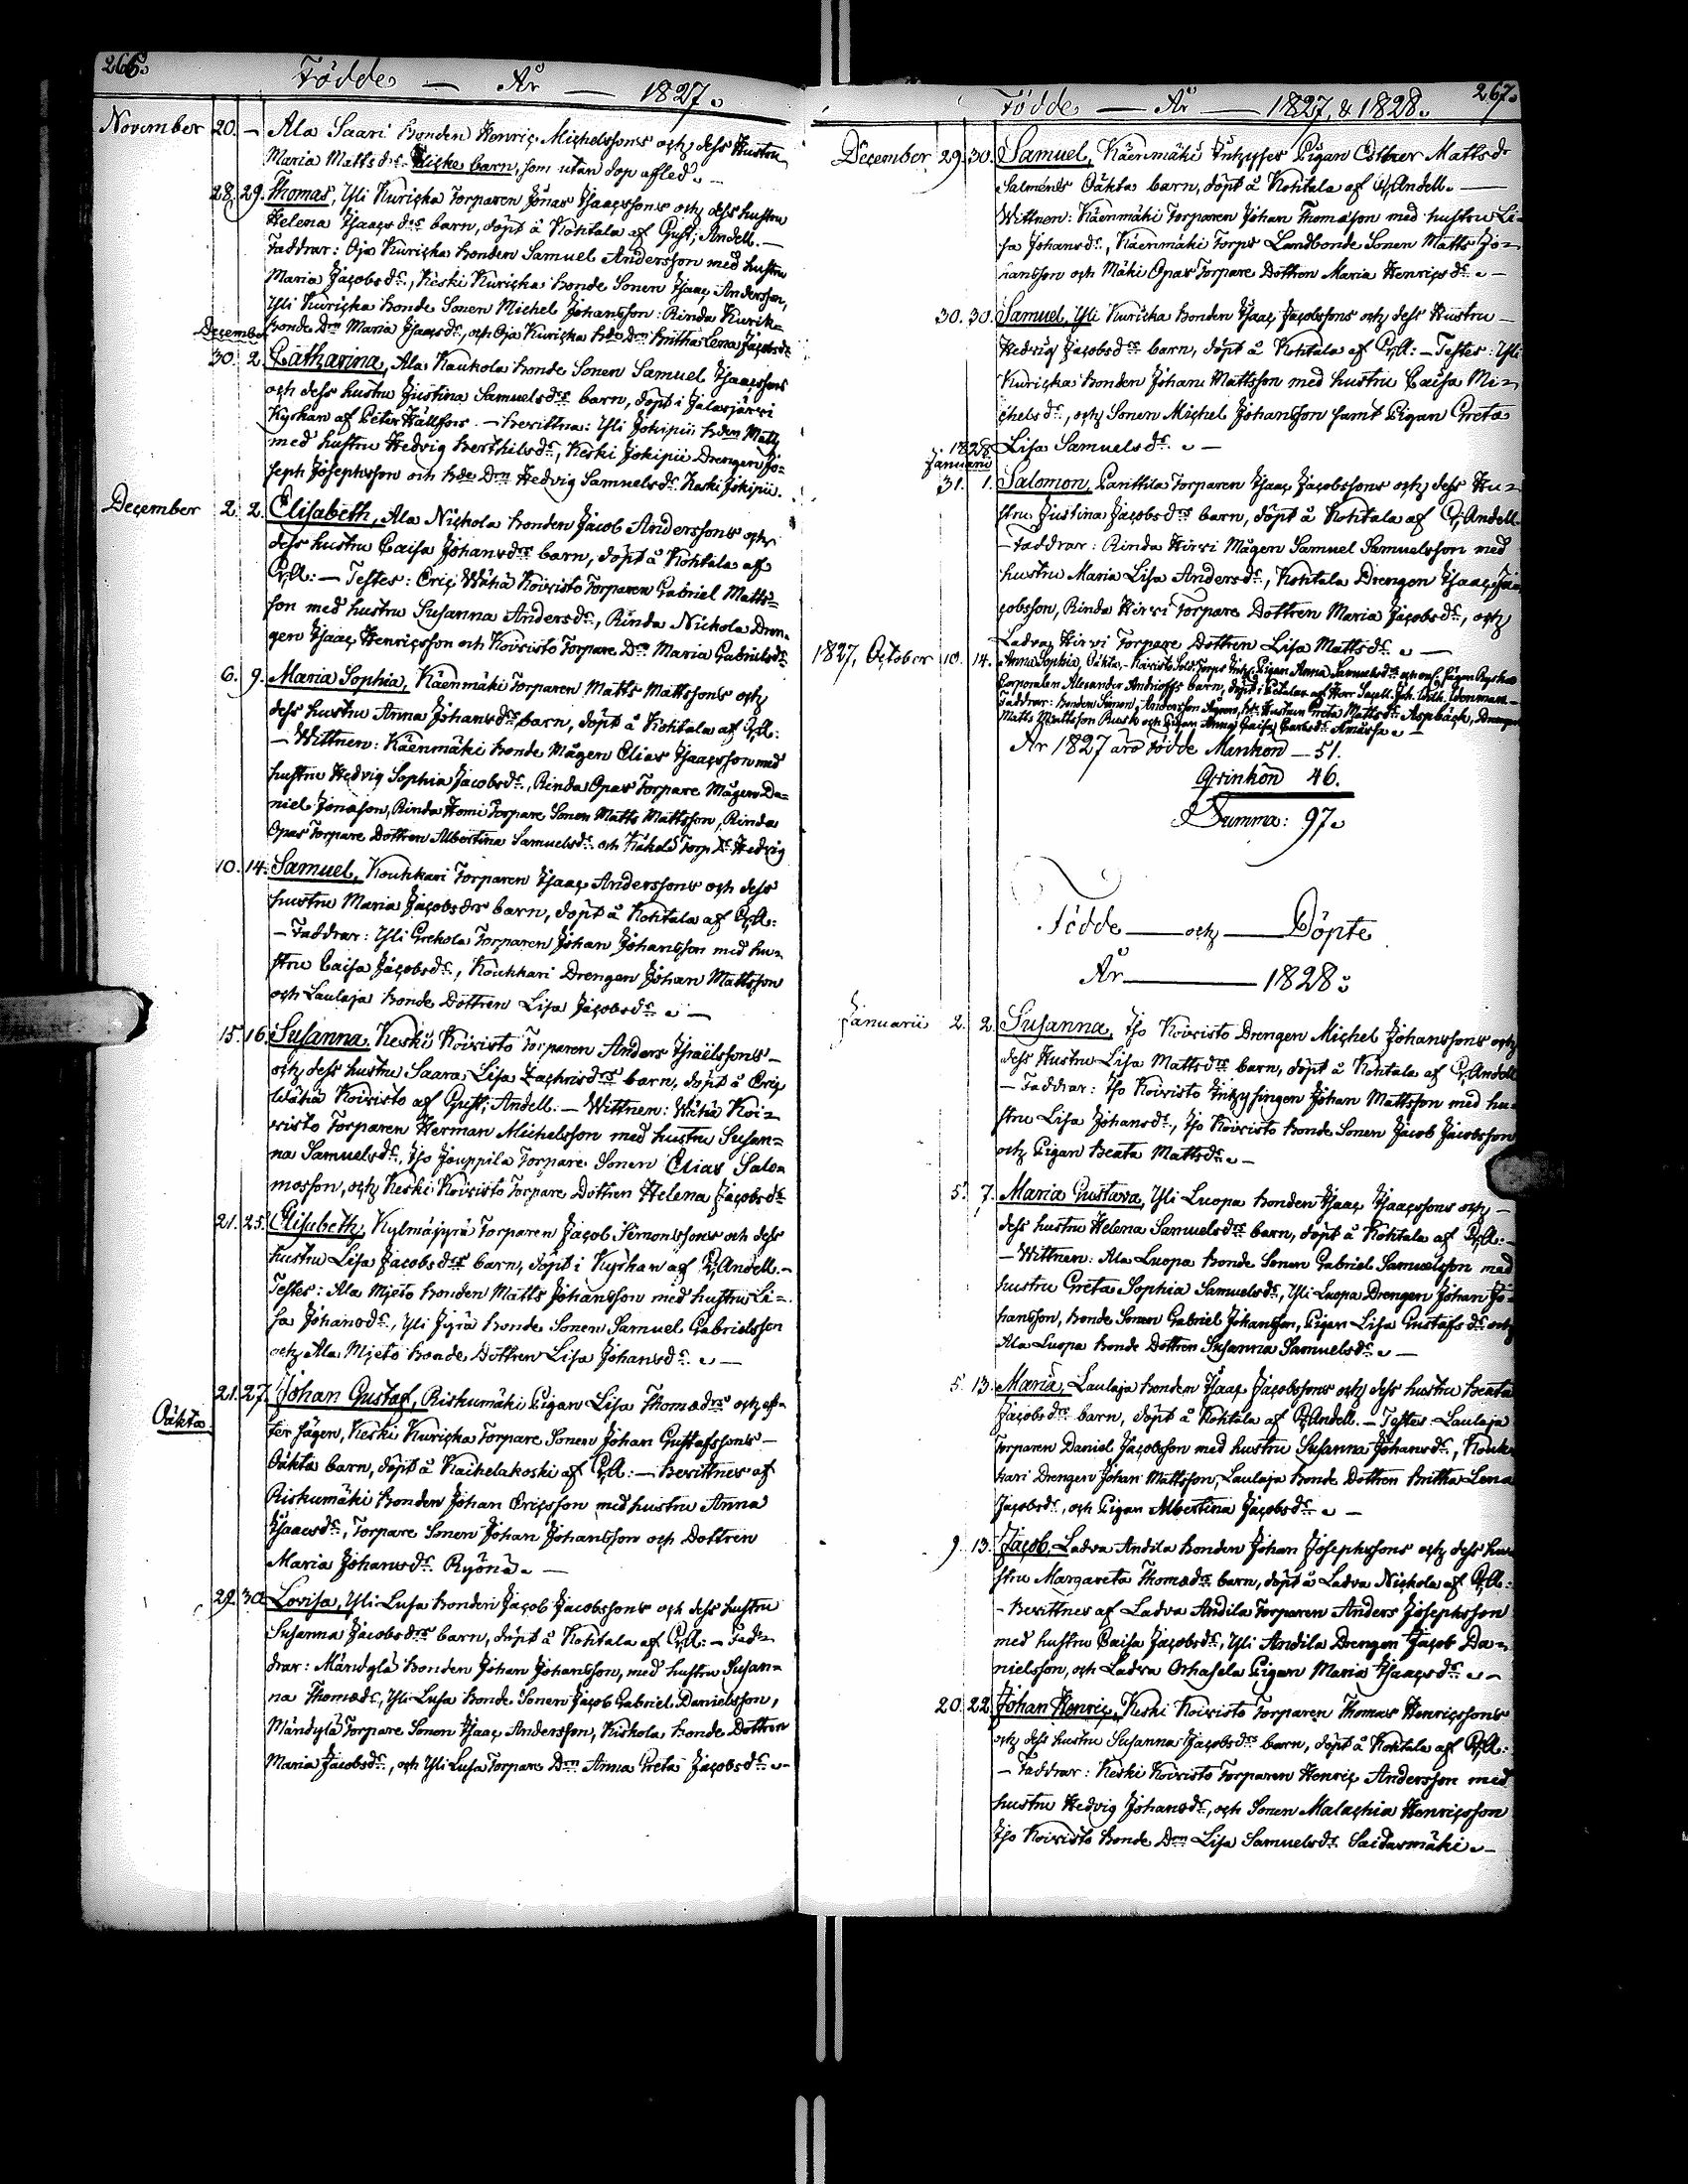 266.
Födde — År — 1827.
November 20. — Ala Saari bonden Henriç Michelssons och dess Hustru
Maria Matts drs Flicke barn, som utan dop afled. —
28. 29. Thomas, Yli Kuricka Torparen Jonas Isaacssons och dess hustru
Helena Isaacs drs barn, döpt å Kohtala af Gust; Andell. —
Faddrar: Oja Kuricka bonden Samuel Andersson med hustru
Maria Jacobs dr, Keski Kuricka bonde Sonen Isaac Andersson,
Yli Kuricka bonde Sonen Michel Johansson: Rinda Kurik=
December bonde Drn Maria Isaacs dr, och Oja Kuricka bde Drn Britha Lena Jacobs dr
30. 2. Catharina, Ala Kaukola bonde Sonen Samuel Isaacssons
och dess hustru Justina Samuels drs barn, döpt i Jalasjärvi
Kyrkan af Peter Hällfors. — bevittna: Yli Jokipii bden Matts
med hustru Hedvig Berthils dr, Keski Jokipii Drengen Jo=
seph Josephsson och bde Drn Hedvig Samuels dr Keski Jokipii.
December 2. 2. Elisabeth, Ala Nickola bonden Jacob Anderssons och
dess hustru Caisa Johans drs barn, döpt å Kohtala af
G;A: — Testes: Eriç Wähä Koivisto Torparen Gabriel Matts=
son med hustru Susanna Anders dr, Rinda Nickola Dren=
gen Isaac Henricsson och Koivisto Torpare Drn Maria Gabriels dr
6. 9. Maria Sophia, Käenmäki Torparen Matts Mattssons och
dess hustru Anna Johans drs barn, döpt å Kohtala af G;A:
— Wittnen: Käenmäki bonde Mågen Elias Isaacsson med
hustru Hedvig Sophia Jacobs dr, Rinda Opas Torpare Mågen Da=
niel Jonasson, Rinda Homi Torpare Sonen Matts Mattsson, Rinda
Opas Torpare Dottren Albertina Samuels dr och Torp Dr Hedvig
10. 14. Samuel, Kouhkari Torparen Isaac Anderssons och dess
hustru Maria Jacobs drs barn, döpt å Kohtala af G;A:
— Faddrar: Yli Grekola Torparen Johan Johansson med hu=
stru Caisa Jacobs dr, Kouhkari Drengen Johan Mattsson
och Laulaja bonde Dottren Lisa Jacobs dr. —
15. 16. Susanna, Keski Koivisto Torparen Anders Israëlssons —
och dess hustru Saara Lisa Zachris drs barn, döpt å Eriç
Wähä Koivisto af Gust; Andell. — Wittnen: Wähä Koi=
visto Torparen Herman Michelsson med hustru Susan=
na Samuels dr, Iso Jouppila Torpare Sonen Elias Salo=
mosson, och Keski Koivisto Torpare Dottren Helena Jacobs dr
21. 25. Elisabeth, Kylmäjyrä Torparen Jacob Simonssons och dess
hustru Lisa Jacobs drs barn, döpt i Kyrkan af G;Andell. —
Testes: Ala Mieto bonden Matts Johansson med hustru Li=
sa Johans dr, Yli Jyrä bonde Sonen Samuel Gabrielsson
och Ala Mieto bonde Dottren Lisa Johans dr. —
21. 27. Johan Gustaf, Riskumäki Pigan Lisa Thomæ drs och ef=
Oäkta. ter sägen, Keski Kuricka Torpare Sonen Johan Gustafssons —
Oäkta barn, döpt å Kaihelakoski af G;A: — bevittnes af
Riskumäki bonden Johan Ericsson med hustru Anna
Isaacs dr, Torpare Sonen Johan Johansson och Dottren
Maria Johans dr Ryönä. —
29. 30. Lovisa, Yli Lusa bonden Jacob Jacobssons och dess hustru
Susanna Jacobs drs barn, döpt å Kohtala af G;A: — Fad=
drar: Mändylä bonden Johan Johansson, med hustru Susan=
na Thomæ dr, Yli Lusa bonde Sonen Jacob Gabriel Danielsson,
Mändylä Torpare Sonen Isaac Andersson, Kiskola bonde Dottren
Maria Jacobs dr, och Yli Lusa Torpare Drn Anna Greta Jacobs dr. —
267.
Födde — År — 1827, & 1828.
December 29. 30. Samuel, Käenmäki Inhyses Pigan Esther Matts dr
Salméns Oäkta barn, döpt å Kohtala af G;Andell. —
Wittnen: Käenmäki Torparen Johan Thomasson med hustru Li=
sa Johans dr, Käenmäki Torps Landbonde Sonen Matts Jo=
hansson och Mäki Opas Torpare Dottren Maria Henrics dr. —
30. 30. Samuel, Yli Kuricka bonden Isaac Jacobssons och dess Hustru —
Hedvig Jacobs drs barn, döpt å Kohtala af G;A: — Testes: Yli
Kuricka bonden Johan Mattsson med hustru Caisa Mi=
chels dr, och Sonen Michel Johansson samt Pigan Greta
1828 Lisa Samuels dr. —
Januarii
31. 1. Salomon, Panttila Torparen Isaac Jacobssons och dess Hu=
stru Justina Jacobs drs barn, döpt å Kohtala af G;Andell.
— Faddrar: Rinda Hirvi Mågen Samuel Samuelsson med
hustru Maria Lisa Anders dr, Kohtala Drengen Isaac Ja=
cobsson, Rinda Hirvi Torpare Dottren Maria Jacobs dr, och
Ladva Hirvi Torpare Dottren Lisa Matts dr. —
1827, October 10. 14. Anna Sophia, Oäkta, — Koivisto Sold. Torps Inh. Pigan Anna Samuels drs och enl. sägen Ryska
Corporalen Alexander Andrioffs barn, döpt i Petalax af Herr Sacell. Joh. Wilh. Wenman —
Faddrar: bonden Simon Andersson Ägren, bde Hustrun Greta Matts dr Aspbäck, Drengen
Matts Mattsson Rusk och Pigan Anna Caisa Carls dr —
År 1827 äro födde Mankön — 51.
Qvinkön 46.
Summa: 97.
Födde — och — Döpte
År — 1828.
Januarii 2. 2. Susanna, Iso Koivisto Drengen Michel Johanssons och
dess Hustru Lisa Matts drs barn, döpt å Kohtala af G;Andell
— Faddrar: Iso Koivisto Inhysingen Johan Mattsson med hu=
stru Lisa Johans dr, Iso Koivisto bonde Sonen Jacob Jacobsson
och Pigan Beata Matts dr. —
5. 7. Maria Gustava, Yli Luopa bonden Isaac Isaacssons och —
dess hustru Helena Samuels drs barn, döpt å Kohtala af G;A: —
— Wittnen: Ala Luopa bonde Sonen Gabriel Samuelsson med
hustru Greta Sophia Samuels dr, Yli Luopa Drengen Johan Jo=
hansson, bonde Sonen Gabriel Johansson, Pigan Lisa Gustafs dr och
Ala Luopa bonde Dottren Susanna Samuels dr. —
5. 13. Maria, Laulaja bonden Isaac Jacobssons och dess hustru Beata
Jacobs drs barn, döpt å Kohtala af G;Andell. — Testes: Laulaja
Torparen Daniel Jacobsson med hustru Susanna Johans dr, Kouh=
kari Drengen Johan Mattsson, Laulaja bonde Dottren Britta Lena
Jacobs dr, och Pigan Albertina Jacobs dr. —
9. 13. Jacob, Ladva Andila bonden Johan Josephssons och dess hu=
stru Margareta Thomæ drs barn, döpt å Ladva Nickola af G;A:
— bevittnes af Ladva Andila Torparen Anders Josephsson
med hustru Caisa Jacobs dr, Yli Andila Drengen Jacob Da=
nielsson, och Ladva Orhasela Pigan Maria Isaacs dr. —
20. 22. Johan Henriç, Keski Koivisto Torparen Thomas Henricssons
och dess hustru Susanna Jacobs drs barn, döpt å Kohtala af G;A:
— Faddrar: Keski Koivisto Torparen Henric Andersson med
hustru Hedvig Johans dr, och Sonen Malachia Henricsson
Iso Koivisto bonde Drn Lisa Samuels dr Saidasmäki. —